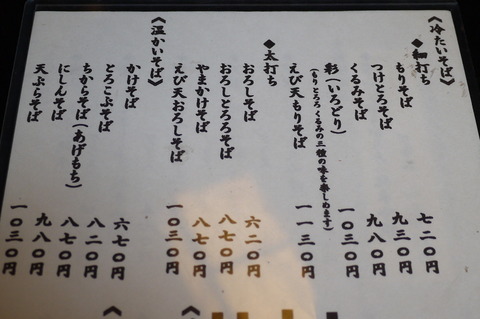 《冷たいそば》
◆細打ち
もりそば 七二〇円
つけとろそば 九三〇円
くるみそば 九八〇円
彩(いろどり) 一〇三〇円
(もりとろろくるみの三種の味を楽しめます)
えび天もりそば 一一三〇円
◆太打ち
おろしそば 六二〇円
おろしとろろそば 八七〇円
やまかけそば 八七〇円
えび天おろしそば 一〇三〇円
《温かいそば》
かけそば 六七〇円
とろこぶそば 八二〇円
ちからそば(あげもち) 八七〇円
にしんそば 九八〇円
天ぷらそば 一〇三〇円